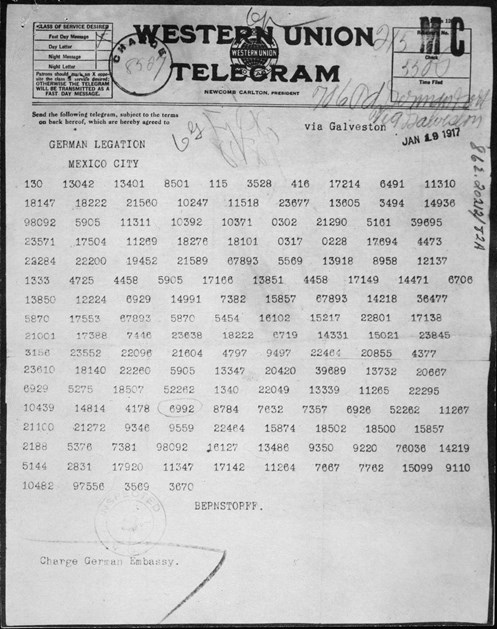 CLASS OF SERVICE DESIRED
Fast Day Message
Day Letter
Night Message
Night Letter
Patrons should mark an X oppo-
site the class of service desired;
OTHERWISE THE TELEGRAM
WILL BE TRANSMITTED AS A
FAST DAY MESSAGE.
CHARGE
WESTERN UNION
WESTERN UNION
TELEGRAM
NEWCOMB CARLTON, PRESIDENT
Time Filed
Send the following telegram, subject to the terms
on back hereof, which are hereby agreed to
via Galveston
JAN 19 1917
GERMAN LEGATION
MEXICO CITY
130 13042 13401 8501 115 3528 416 17214 6491 11310
18147 18222 21560 10247 11518 23677 13605 3494 14936
98092 5905 11311 10392 10371 0302 21290 5161 39695
23571 17504 11269 18276 18101 0317 0228 17694 4473
23284 22200 19452 21589 67893 5569 13918 8958 12137
1333 4725 4458 5905 17166 13851 4458 17149 14471 6706
13850 12224 6929 14991 7382 15857 67893 14218 36477
5870 17553 67893 5870 5454 16102 15217 22801 17138
21001 17388 7446 23638 18222 6719 14331 15021 23845
3156 23552 22096 21604 4797 9497 22464 20855 4377
23610 18140 22260 5905 13347 20420 39689 13732 20667
6929 5275 18507 52262 1340 22049 13339 11265 22295
10439 14814 4178 6992 8784 7632 7357 6926 52262 11267
21100 21272 9346 9559 22464 15874 18502 18500 15857
2188 5376 7381 98092 16127 13486 9350 9220 76036 14219
5144 2831 17920 11347 17142 11264 7667 7762 15099 9110
10482 97556 3569 3670
BERNSTORFF.
Charge German Embassy.